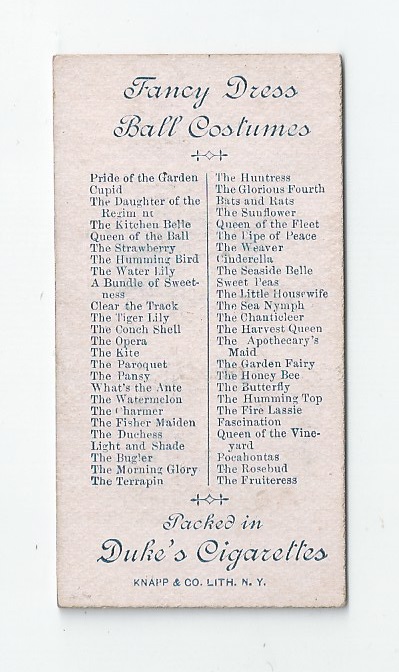 Fancy Dress
Ball Costumes
Pride of the Garden
Cupid
The Daughter of the
Regim nt
The Kitchen Belle
Queen of the Ball
The Strawberry
The Humming Bird
The Water Lily
A Bundle of Sweet-
ness
Clear the Track
The Tiger Lily
The Conch Shell
The Opera
The Kite
The Paroquet
The Pansy
What's the Ante
The Watermelon
The Charmer
The Fisher Maiden
The Duchess
Light and Shade
The Bugler
The Morning Glory
The Terrapin
The Huntress
The Glorious Fourth
Bats and Rats
The Sunflower
Queen of the Fleet
The Pipe of Peace
The Weaver
Cinderella
The Seaside Belle
Sweet Peas
The Little Housewife
The Sea Nymph
The Chanticleer
The Harvest Queen
The Apothecary's
Maid
The Garden Fairy
The Honey Bee
The Butterfly
The Humming Top
The Fire Lassie
Fascination
Queen of the Vine-
yard
Pocahontas
The Rosebud
The Fruiteress
Packed in
Duke's Cigarettes
KNAPP & CO. LITH. N. Y.